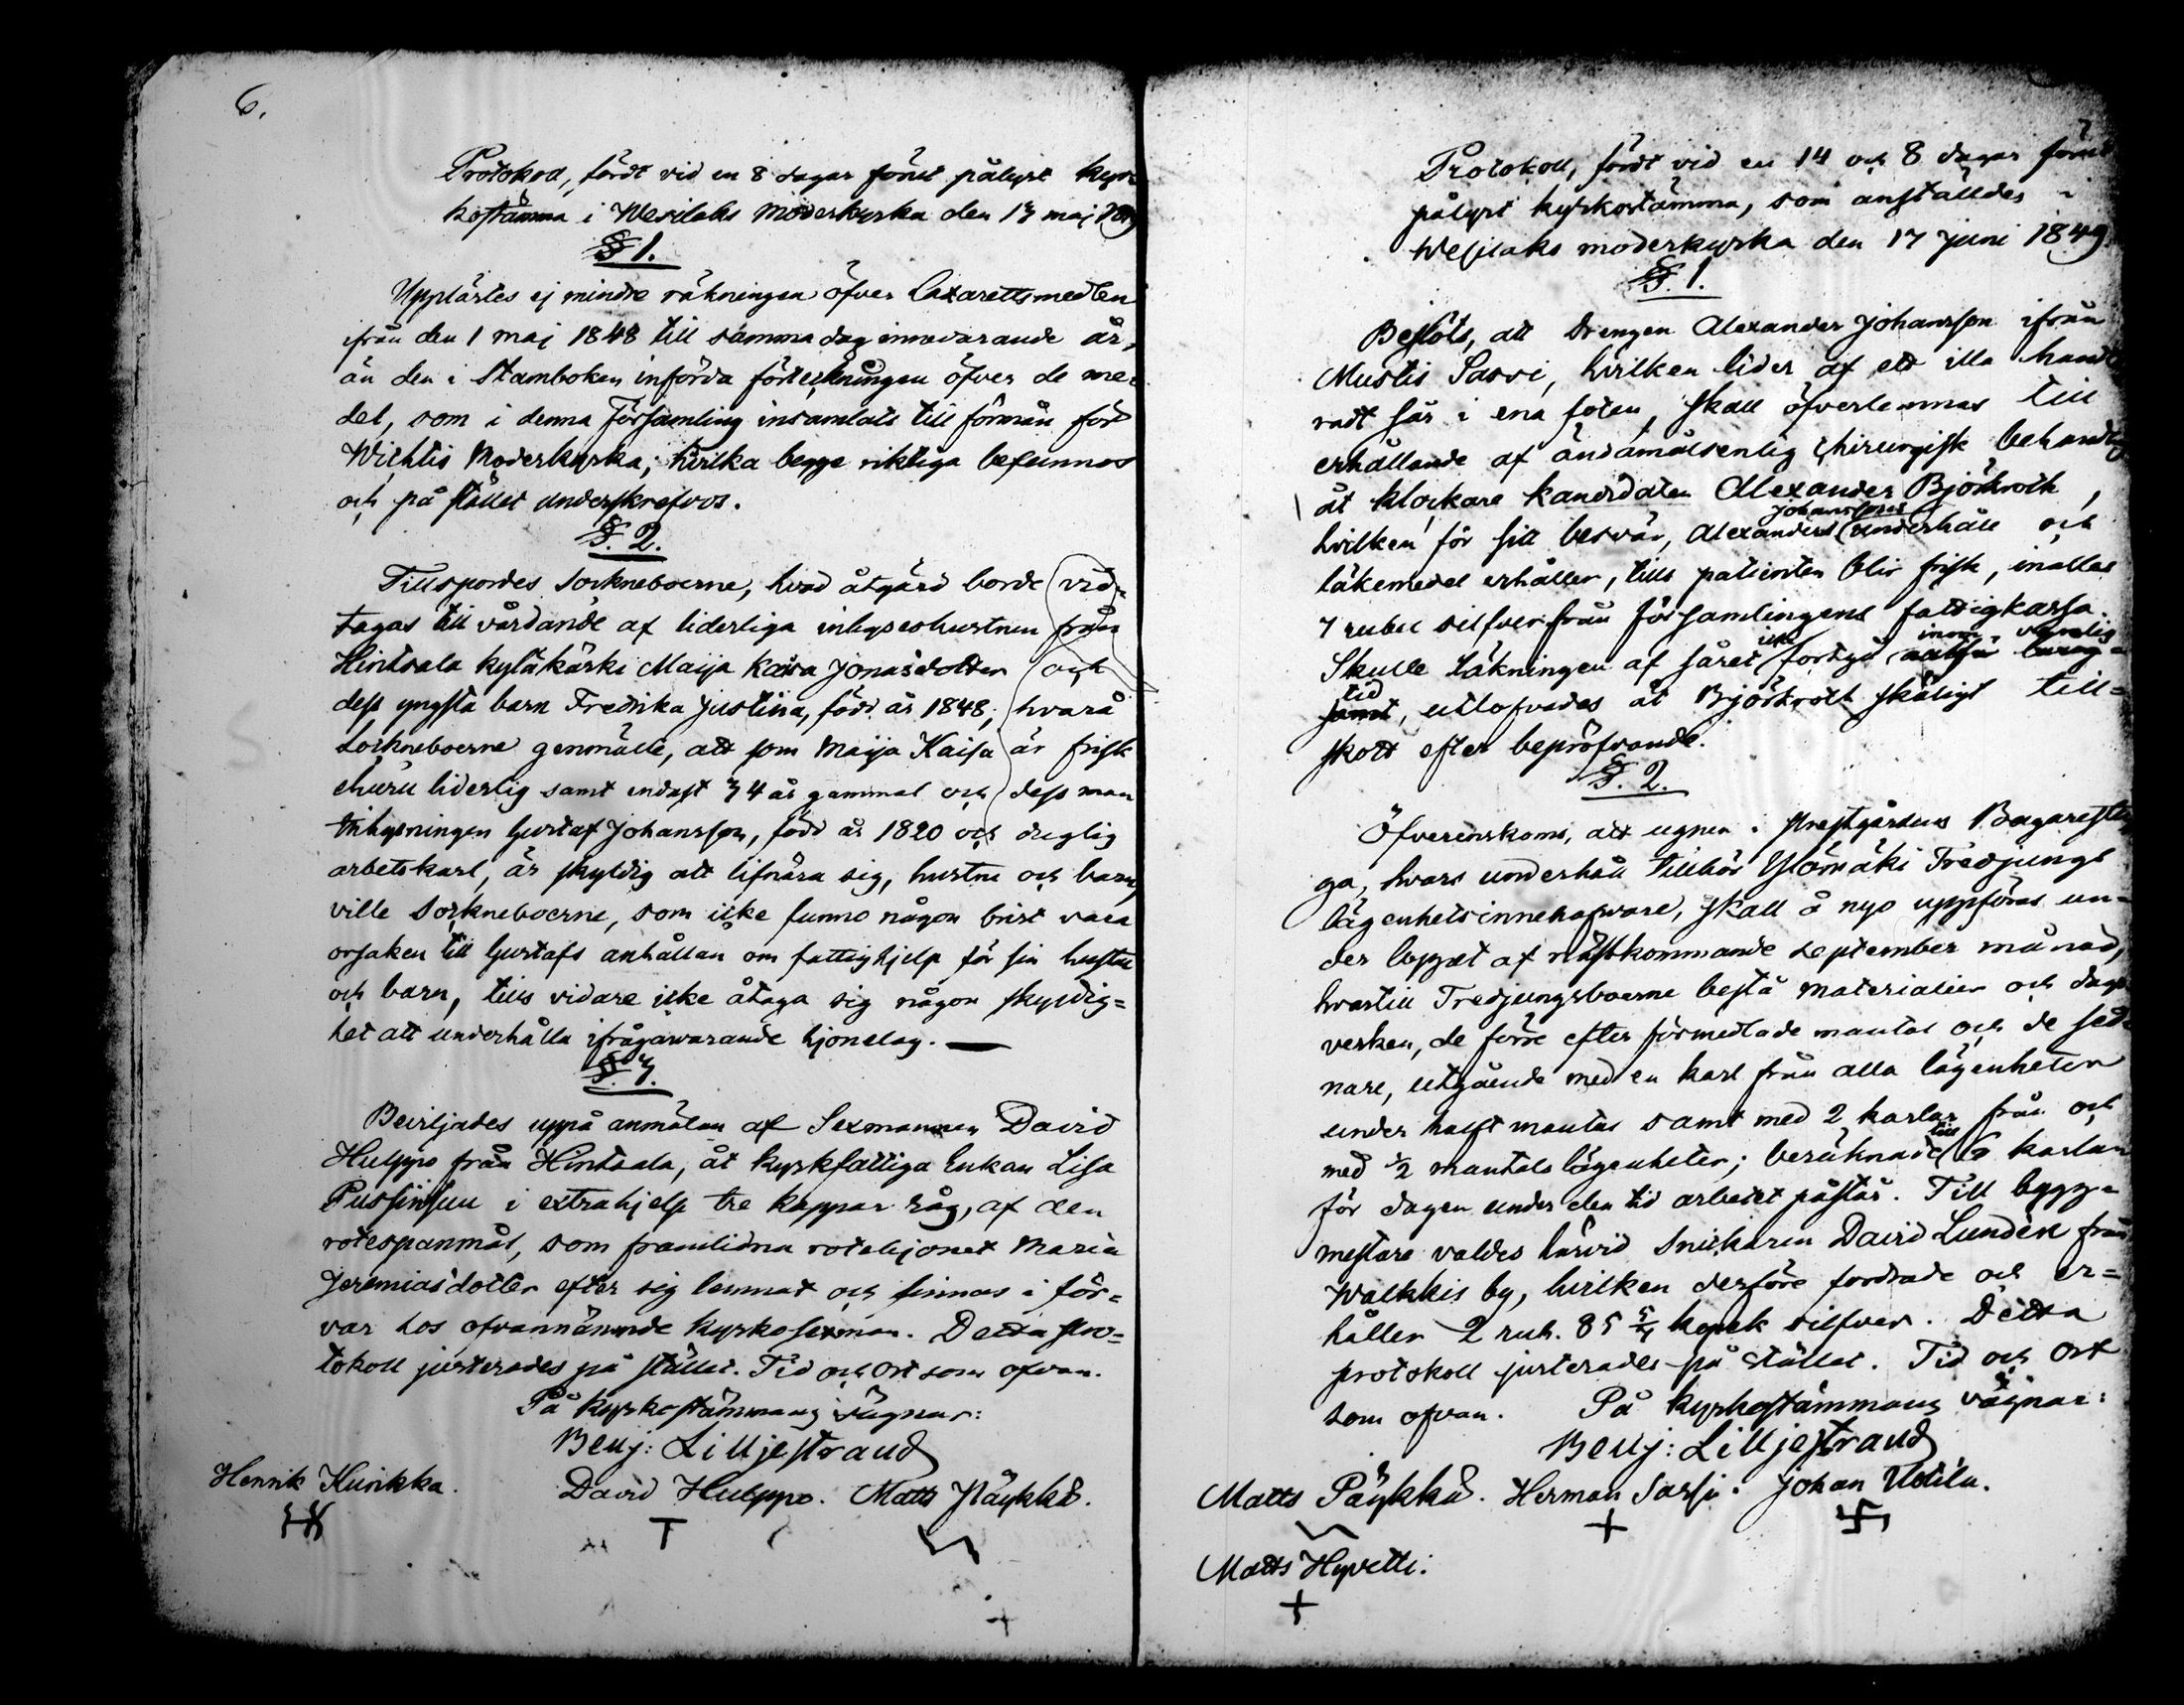 6.
Protokoll, fördt vid en 8 dagar förut pålyst kyr-
kostämma i Wesilaks Moderkyrka den 13 maj 1849
§ 1.
Upplästes ej mindre räkningen öfver Lazarettsmedlen
ifrån den 1 maj 1848 till samma dag innevarande år,
än den i Stamboken införda förteckningen öfver de me-
del, som i denna Församling insamlats till förmån för
Wichtis Moderkyrka; hvilka begge riktiga befunnos
och på stället underskrefvos.
§. 2.
Tillspordes Sockneboerne, hvad åtgärd borde vid-
tagas till vårdande af liderliga inhyseshustrun från
Hintsala kyläkärki Maija Kaisa Jonasdotter och
dess yngsta barn Fredrika Justina, född år 1848; hvarå
Sockneboerne genmälte, att som Maija Kaisa är frisk
ehuru liderlig samt endast 34 år gammal och dess man
inhysningen Gustaf Johansson, född år 1820 och duglig
arbetskarl, är skyldig att lifnära sig, hustru och barn,
ville Sockneboerne, som icke funno någon brist vara
orsaken till Gustafs anhållan om fattighjelp för sin hustru
och barn, tills vidare icke åtaga sig någon skyldig=
het att underhålla ifrågavarande hjonelag. —
§. 3.
Beviljades uppå anmälan af Sexmannen David
Hulppo från Hintsala, åt kyrkfattiga Enkan Lisa
Pussinsuu i extrahjelp tre kappar råg, af den
rotespanmål, som framlidna rotehjonet Maria
Jeremiasdotter efter sig lemnat och finnas i för=
var hos ofvannämnde kyrkosexman. Detta pro=
tokoll justerades på stället. Tid och Ort som ofvan.
På kyrkostämmans vägnar:
Benj: Lilljestrand
Henrik Kurikka. David Hulppo. Matts Päykkä.
Protokoll, fördt vid en 14 och 8 dagar förut
pålyst kyrkostämma, som anställdes i
Wesilaks moderkyrka den 17 Juni 1849.
§. 1.
Beslöts, att Drengen Alexander Johansson ifrån
Mustis Sassi, hvilken lider af ett illa hand
radt sår i ena foten, skall öfverlemnas till
erhållande af ändamålsenlig chirurgisk behandling
åt klockare kandidaten Alexander Björkroth,
Johanssons
hvilken för sitt besvär, Alexanders underhåll och
läkemedel erhåller, tills patienten blir frisk, inalles
7 rubel silfver från församlingens fattigkassa.
icke inom vanlig
Skulle Läkningen af såret fortgå
tid
, utlofvades åt Björkroth skäligt till=
skott efter bepröfvande.
§. 2.
Öfverenskoms, att ugnen i prestgårdens Bagarestu
ga, hvars underhåll tillhör Ylömäki Tredjungs
lägenhetsinnehafvare, skall å nyo uppföras un-
der loppet af nästkommande September månad,
hvartill Tredjungsboerne bestå materialier och dags
verken, de förre efter förmedlade mantal och de sed-
nare, utgående med en karl från alla lägenheter
under halft mantal samt med 2 karlar från och
till
med ½ mantals lägenheter; beräknade 6 karlar
för dagen under den tid arbetet påstår. Till bygg=
mestare valdes härvid Snickaren David Lundén från
Walkkis by, hvilken derföre fordrade och er=
håller 2 rub. 85 5/7 kopek silfver. Detta
protokoll justerades på stället. Tid och Ort
som ofvan. På kyrkostämmans vägnar:
Benj: Lilljestrand
Matts Päykkä. Herman Sarsi. Johan Uotila.
Matts Hyvetti.